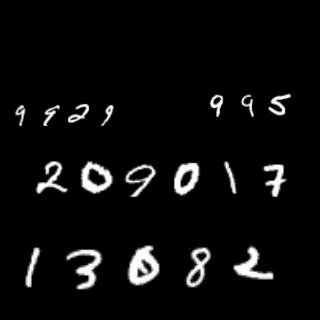 9929 995
209017
13082